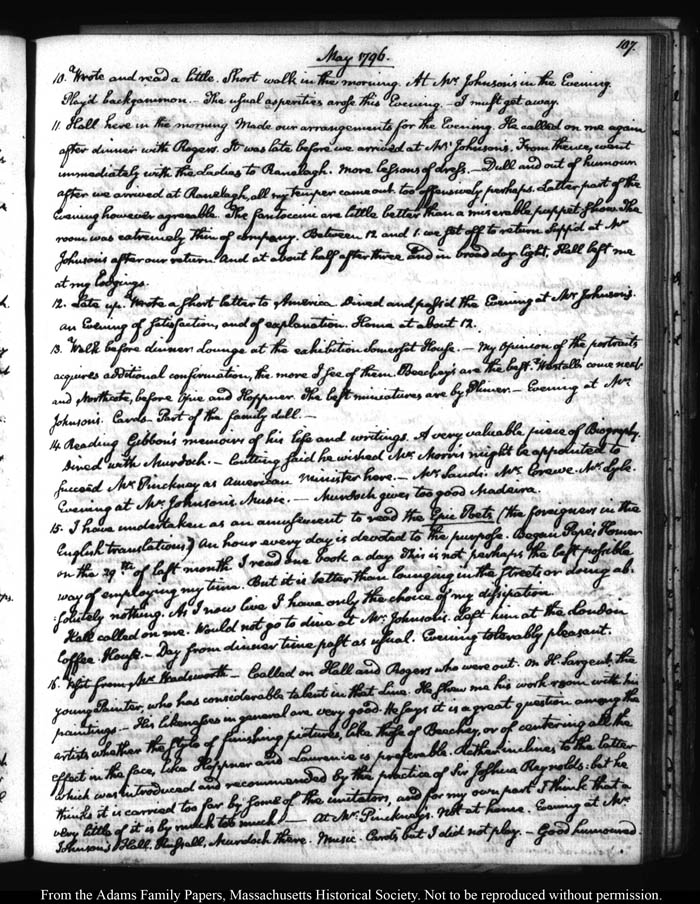 107.
May 1796.
10. Wrote and read a little. Short walk in the morning. At Mr. Johnson's in the Evening.
Play'd backgammon. — The usual asperities arose this Evening. — I must get away.
11. Hall here in the morning. Made our arrangements for the Evening. He called on me again
after dinner with Rogers. It was late before we arrived at Mr. Johnson's. From thence, went
immediately with the Ladies to Ranelagh. more lessons of dress. — Dull and out of humour
after we arrived at Ranelagh, all my temper came out. too offensively perhaps. Latter part of the
Evening however agreeable. The fantoccini are little better than a miserable puppet show. The
room was extremely thin of company. Between 12 and 1. we got off to return. Supp'd at Mr.
Johnson's after our return. And at about half after three and in broad day light, Hall left me
at my lodgings.
12. Late up. Wrote a short letter to America. Dined and pass'd the Evening at Mr. Johnson's.
an Evening of satisfaction, and of explanation. Home at about 12.
13. Walk before dinner. Lounge at the exhibition Somerset House. — My opinion of the portraits
acquires additional confirmation, the more I see of them. Beechey's are the best. Westall's come next
and Northcote, before Opie and Hoppner. The best miniatures are by Plimer. — Evening at Mr.
Johnson's. Cards. Part of the family dull. —
14. Reading Gibbon's memoirs of his life and writings. A very valuable piece of Biography.
Dined with Murdoch. — Cutting said he wished Mr. Morris might be appointed to
succeed Mr. Pinckney as American Minister here. — Mr. Mr. Mr. Lyle.
Evening at Mr. Johnson's. Music. — Murdoch gives too good Madeira.
15. I have undertaken as an amusement to read the Epic Poets (the foreigners in the
English translations.) An hour every day is devoted to the purpose. Began Pope's Homer
on the 29th. of last month. I read one book a day. This is not perhaps the best possible
way of employing my time. But it is better than lounging in the streets or doing ab-
solutely nothing. As I now live I have only the choice of my dissipation.
Hall called on me. Would not go to dine at Mr. Johnson's. Left him at the London
Coffee House. — Day from dinner time past as usual. Evening tolerably pleasant.
16. Visit from Mr. Wadsworth — Called on Hall and Rogers who were out. On H. Sargent, the
young Painter, who has considerable talent in that line. He shew me his work room with his
paintings — His likenesses in general are very good. He says it is a great question among the
artists whether the style of finishing pictures, like those of Beechey, or of centering all the
effect in the face, like Hoppner and Laurence is preferable. Rather inclines to the latter
which was introduced and recommended by the practice of Sir Joshua Reynolds: but he
thinks it is carried too far by some of the imitators, and for my own part I think that a
very little of it is by much too much. — At Mr. Pinckney's. Not at home. Evening at Mr.
Johnson's. Hall, Murdoch there. Music. Cards, but I did not play. — Good humoured
From the Adams Family Papers, Massachusetts Historical Society. Not to be reproduced without permission.